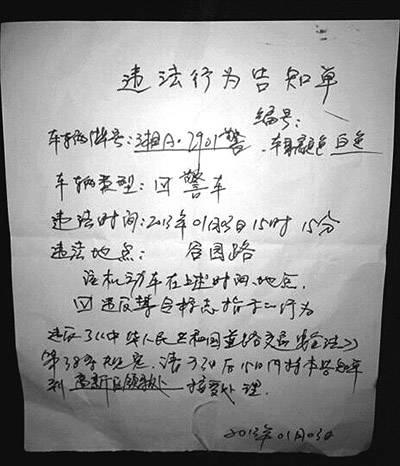 违法行为告知单
编号:
车辆牌号:湘A·2901警 车身颜色 白色
车辆类型: 囗 警车
违法时间:2013年01月03日15时15分
违法地点: 谷园路
该机动车在上述时间、地点,
囗 违反禁令标志指示行为
违反了《中华人民共和国道路交通安全法》
第38条规定。请于3日后15日内持本告知单
到 高新区领执处 接受处理.
2013年01月03日